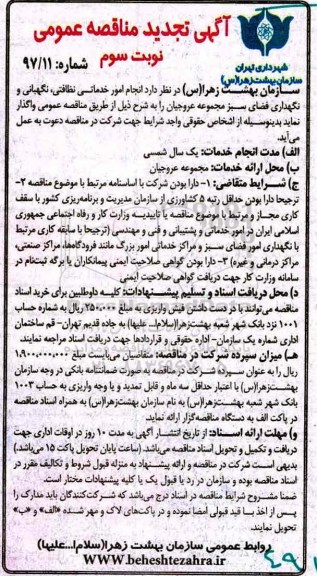 آگهی تجدید مناقصه عمومی
نوبت سوم
شماره: ۹۷/۱۱
شهرداری تهران
سازمان بهشت زهرا(س)
سازمان بهشت زهرا(س) در نظر دارد انجام امور خدماتی نظافتی، نگهبانی و
نگهداری فضای سبز مجموعه عروجیان را به شرح ذیل از طریق مناقصه عمومی واگذار
نماید بدینوسیله از اشخاص حقوقی واجد شرایط جهت شرکت در مناقصه دعوت به عمل
می‌آید.
الف) مدت انجام خدمات: یک سال شمسی
ب) محل ارائه خدمات: مجموعه عروجیان
ج) شرایط متقاضی: ۱- دارا بودن شرکت با اساسنامه مرتبط با موضوع مناقصه ۲-
ترجیحا دارا بودن حداقل رتبه ۵ کشاورزی از سازمان مدیریت و برنامه‌ریزی کشور با سقف
کاری مجاز و مرتبط با موضوع مناقصه یا تاییدیه وزارت کار و رفاه اجتماعی جمهوری
اسلامی ایران در امور خدماتی و پشتیبانی و فنی و مهندسی (ترجیحا با سابقه کاری مرتبط
با نگهداری امور فضای سبز و مراکز خدماتی امور بزرگ مانند فرودگاه‌ها، مراکز صنعتی،
مراکز درمانی و غیره) ۳- دارا بودن گواهی صلاحیت ایمنی پیمانکاران یا برگه ثبت‌نام در
سامانه وزارت کار جهت دریافت گواهی صلاحیت ایمنی
د) محل دریافت اسناد و تسلیم پیشنهادات: کلیه داوطلبین برای خرید اسناد
مناقصه می‌توانند با در دست داشتن فیش واریزی به مبلغ ۲۵۰،۰۰۰ ریال به شماره حساب
۱۰۰۱ نزد بانک شهر شعبه بهشت‌زهرا(سلام‌ا... علیها) به جاده قدیم تهران- قم ساختمان
اداری شماره یک سازمان- اداره حقوقی و قراردادها جهت دریافت اسناد مراجعه نمایند.
هـ) میزان سپرده شرکت در مناقصه: متقاضیان می‌بایست مبلغ ۱،۹۰۰،۰۰۰،۰۰۰
ریال را به عنوان سپرده شرکت در مناقصه به صورت ضمانتنامه بانکی در وجه سازمان
بهشت‌زهرا(س) با اعتبار حداقل سه ماه و قابل تمدید و یا وجه واریزی به حساب ۱۰۰۳
بانک شهر شعبه بهشت‌زهرا(س) به نام سازمان بهشت‌زهرا(س) به همراه اسناد مناقصه
در پاکت الف به دستگاه مناقصه‌گزار ارائه نماید.
و) مهلت ارائه اسناد: از تاریخ انتشار آگهی به مدت ۱۰ روز در اوقات اداری جهت
دریافت و تکمیل و تحویل اسناد مناقصه می‌باشد. (ساعت پایان تحویل پاکت ۱۵ می‌باشد.)
بدیهی است شرکت در مناقصه و ارائه پیشنهاد به منزله قبول شروط و تکالیف مقرر در
اسناد مناقصه بوده و سازمان در رد یا قبول یک یا کلیه پیشنهادات مختار است.
ضمنا مشروح شرایط مناقصه در اسناد درج می‌باشد که شرکت‌کنندگان باید مدارک را
پس از اخذ با قید قبولی امضا نموده و در پاکت‌های لاک و مهر شده «الف» و «ب»
تحویل نمایند.
روابط عمومی سازمان بهشت زهرا(سلام‌ا...علیها)
WWW.beheshtezahra.ir